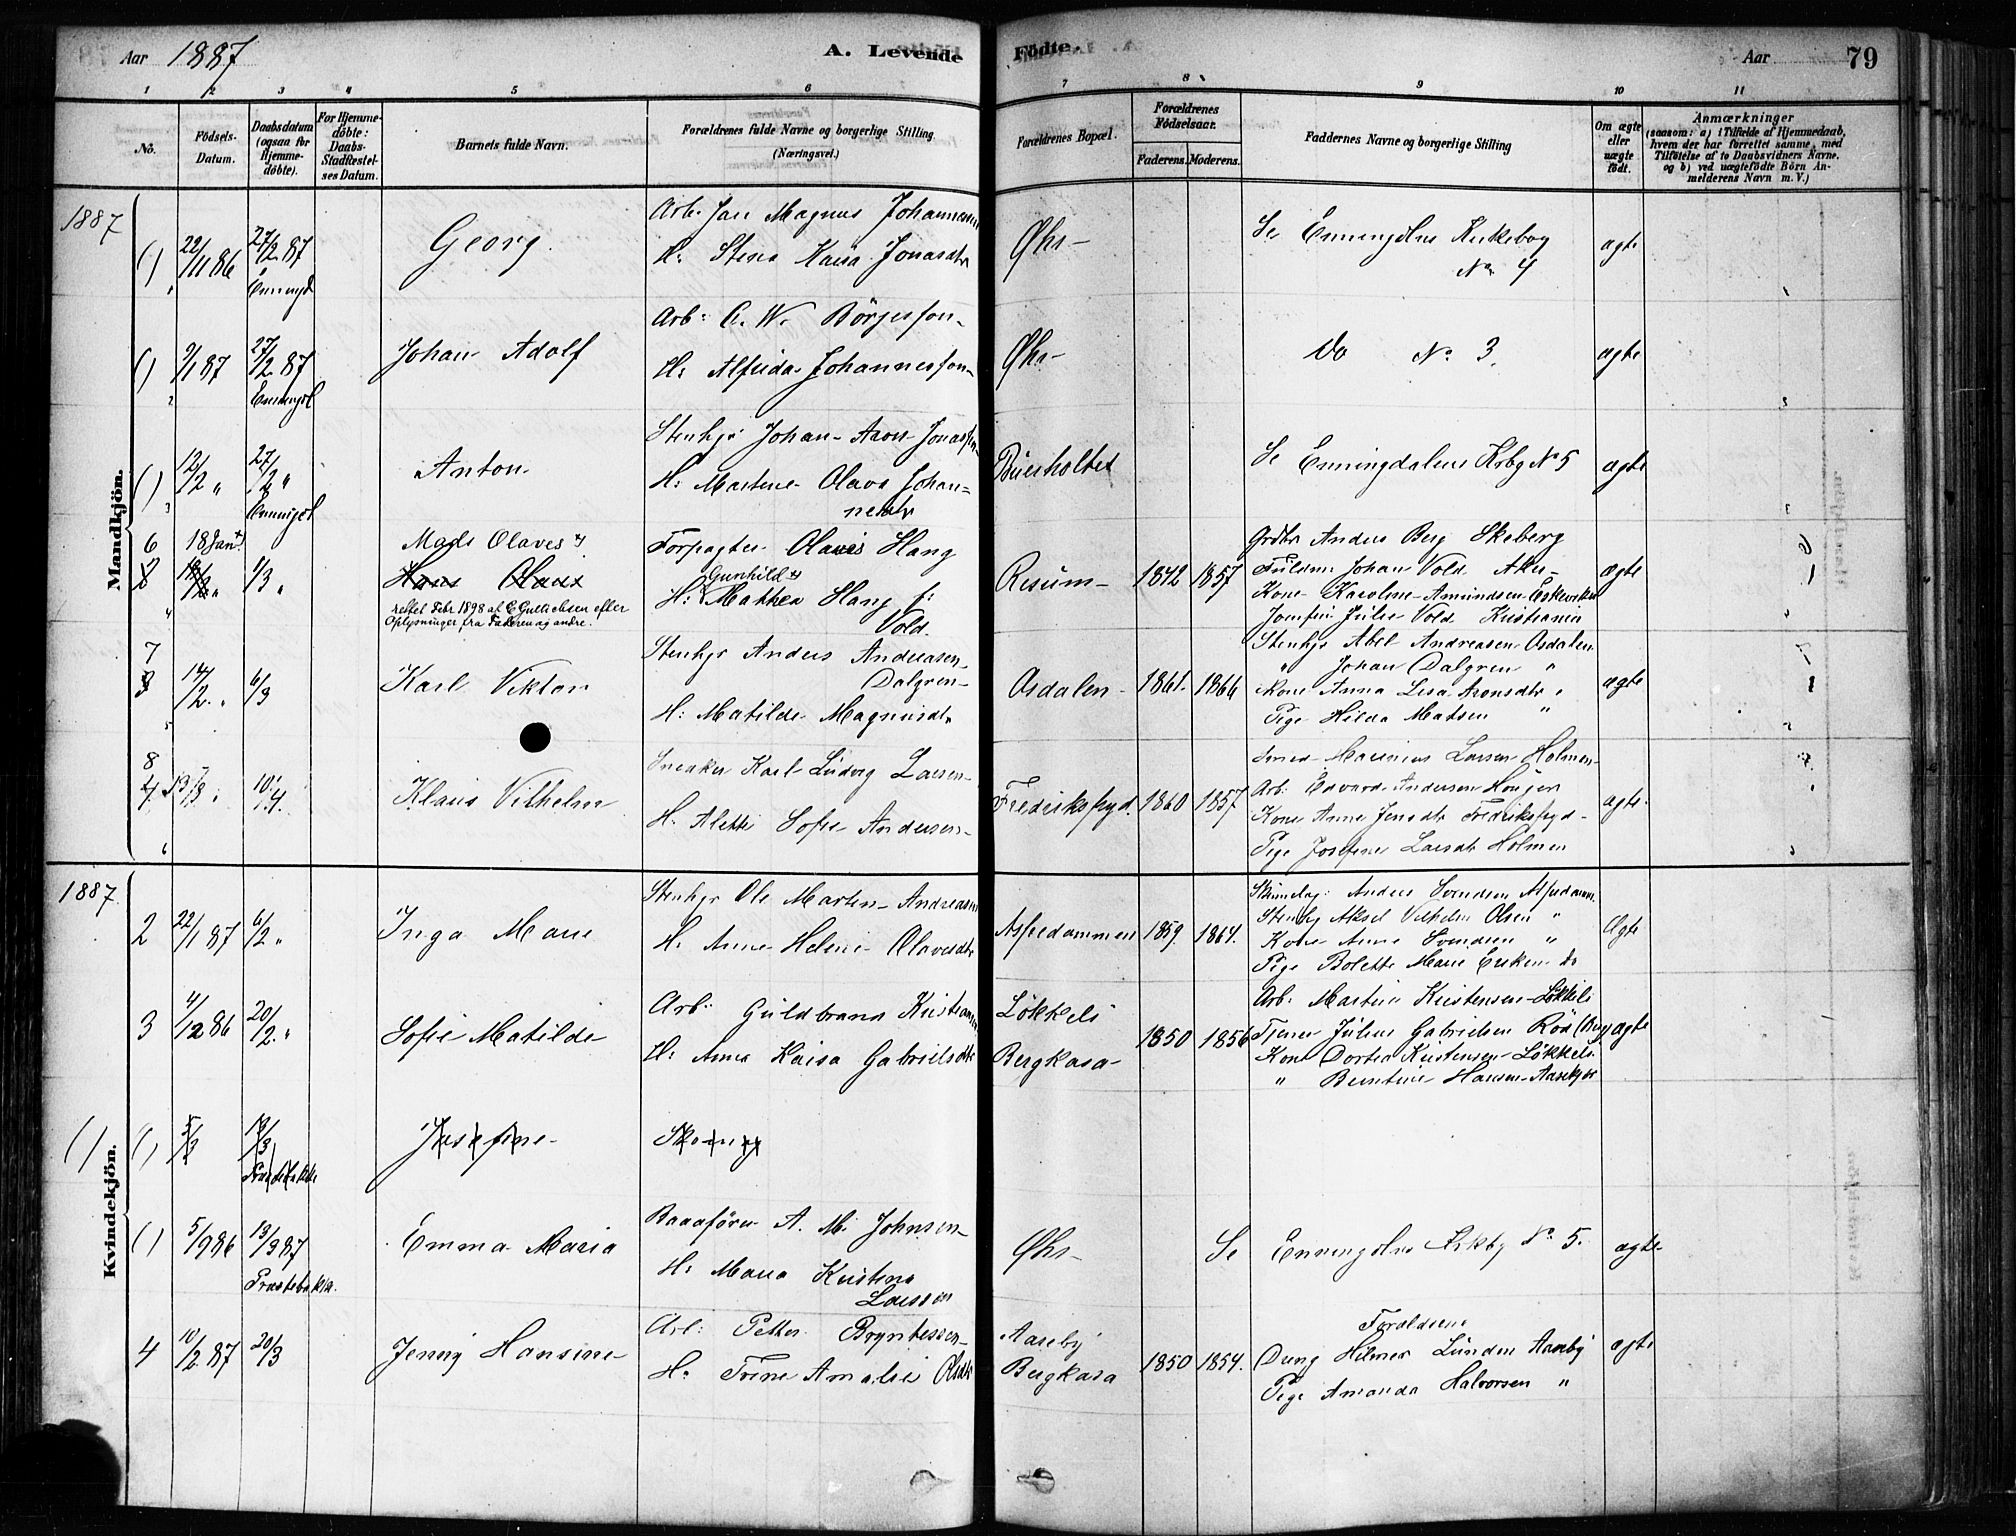 Aar 1887
A. Levende
Födte.
Aar
79
1 2 3 4 5 6 7 8 9 10 11
No.
Födsels-
Datum.
Daabsdatum
(ogsaa for
Hjemme-
döbte).
For Hjemme-
döbte:
Daabs-
Stadfæstel-
ses Datum.
Barnets fulde Navn.
Forældrenes fulde Navne og borgerlige Stilling
(Næringsvei.)
Forældrenes Bopæl.
Forældrenes
Födselsaar.
Faderens. Moderens.
Faddernes Navne og borgerlige Stilling
Om ægte
eller
uægte
födt.
Anmærkninger
(saasom: a) i Tilfælde af Hjemmedaab,
hvem der har forrettet samme, med
Tilföielse af to Daabsvidners Navne,
og b) ved uægtefödte Börn An-
melderens Navn m. V.)
1887
Mandkjön.
() 22/11 86 27/2 87
Enningd
Georg.
Arb: Jan Magnus Johannesen
H: Stina Kaisa Jonasdtr
Øhr-
Se Enningdlns Kirkebog
No 4
ægte
() 9/1 87 27/2 87
Enningdl
Johan Adolf
Arb: C. W. Börjesson
H: Alfrida Johannesson
Øhr-
Do No 3.
ægte
() 12/2 " 27/2 "
Enningdl
Anton
Stenhgr Johan Aron Jonassen
H: Martine Olava Johan=
nesdtr
Buerholtet
Se Enningdalens Krbg No 5
ægte
6 18 Jan
1/3 "
Mads Olaves
Hans Olaus
rettet Febr. 1898 af C. Gulbrandsen efter
Oplysninger fra Faderen og andre.
Forpagter Olaves Haug
Gunhild
H: Mathea Haug f:
Vold.
Resum- 1842 1857
Grdbr Anders Berg Skeberg
Johan Vold Aker
Kone Karoline Amundsen Eskeviken
Jomfru Julie Vold Kristiania
ægte
7
3 14/2 " 6/3
Karl Viktor
Stenhgr Anders Andreasen
Dalgren
H: Matilde Magnusdtr
Osdalen 1861. 1866
Stenhgr Abel Andreasen Osdalen
" Johan Dalgren "
Kone Anna Lisa Aronsdtr "
Pige Hilda Matsen "
ægte
8
4. 13/3 " 10/4.
Klaus Vilhelm
Snekker Karl Ludvig Larsen
H. Alette Sofie Andersen
Fredriksfryd. 1860 1857
Smed Maurinius Larsen Holmen
Arb: Edvard Andersen
Kone Anne Jensdtr Fredriksfryd
Pige Josefine Larsdtr Holmen
ægte
1887.
Kvindekjön.
2 22/1 87 6/2 "
Inga Marie
Stenhgr Ole Martin Andreasen
H: Anne Helene Olavesdtr
Asfredammen 1859. 1864.
Anders Svendsen Asfredammen
Stenhg Aksel Vilhelm Olsen "
Kone Anne Svendsen "
Pige Bolette Marie Eriksen do
Ægte
3 4/12 86 20/2. "
Sofie Matilde
Arb: Guldbrand Kristiansen
H: Anna Kaisa Gabrielsdtr
Løkkeli
Bergkasa
1850 1856
Arb: Martin Kristensen Løkkeli
Tjener Julius Gabrielsen Röd (Berg)
Kone Dortea Kristensen Løkkeli
" Berntine Hansen Aarebye
ægte
() () 5/3 13/3
Josefine
() 5/9 86 13/3 87
Prestebakke.
Emma Maria
Baadförer A. M. Johnsen
H: Maria Kristina
Larsson
Øhr-
Se Enningdlns Krkbg No 5.
ægte
4 10/2 87 20/3
Jenny Hansine
Arb: Petter Bryntessen
H: Trine Amalie Olsdtr
Aareby
Bergkasa
1850 1854.
Forældrene
Dreng Hilmer Lunden Aareby
Pige Amanda Halvorsen "
ægte